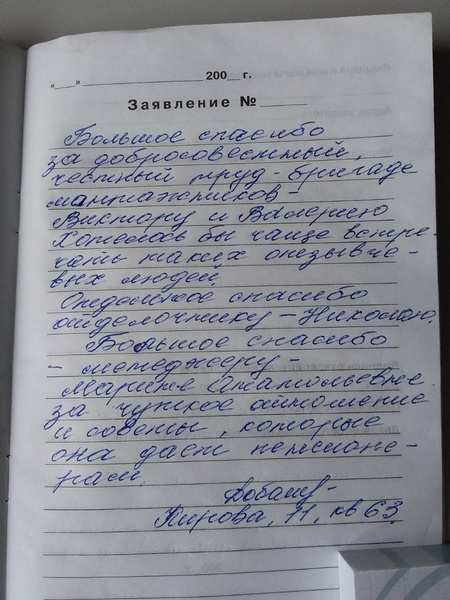 "___" ____________ 200__ г.
Заявление № ______
Большое спасибо
за добросовестный,
честный труд - бригаде
монтажников -
Виктору и Валерию
Хотелось бы чаще встре-
чать таких отзывчи-
вых людей.
Отдельное спасибо
отделочнику - Николаю.
Большое спасибо
- менеджеру -
Марине Анатольевне
за чуткое отношение
и советы, которые
она даёт пенсионе-
рам.
Кирова, 71, кв 63.